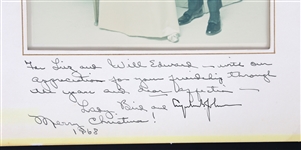 For Liz and Will Edward — with our
appreciation for your friendship through
all years and our affection —
Lady Bird and Lyndon Johnson
Merry Christmas!
1968